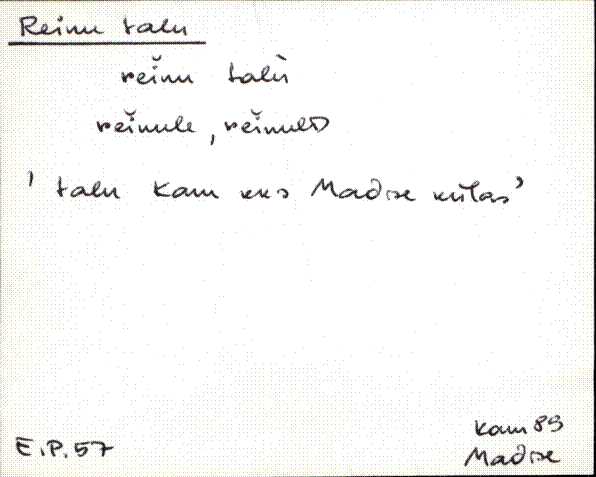 Reinu talu
reinu talù
reinule, reinuld
' talu Kam khk Madise külas'
E.P.57
Kam 89
Madise